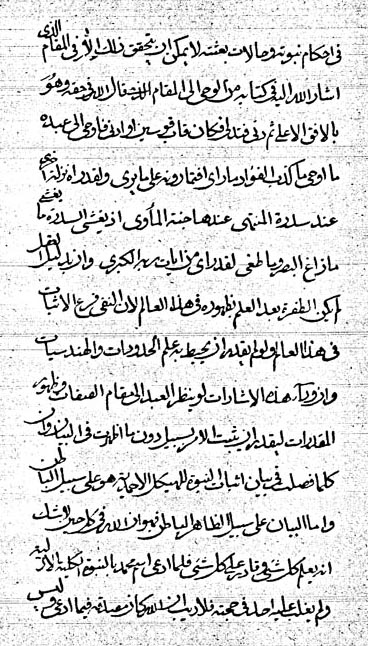 في احكام نبوته وحالات بعثته لا يمكن ان يتحقق ذلك الا في المقام الذي
اشار الله اليه في كتابه من الوحي الى المقام الذي قال الله في حقه وهو
بالافق الاعلى ثم دنى فتدلى فكان قاب قوسين او ادنى فاوحى الى عبده
ما اوحى ما كذب الفؤاد ما راى افتمارونه على ما يرى ولقد راه نزلة اخرى
عند سدرة المنتهى عندها جنة المأوى اذ يغشى السدرة ما يغشى
ما زاغ البصر وما طغى لقد راى من ايات ربه الكبرى وان دليل
لم يكن الطفرة بعد العلم بظهوره في هذا العالم لان النفي فرع الاثبات
في هذا العالم ولم يقدر ان يحيط به علم الحدودات والهندسيات
وان وراء هذه الاشارات لو ينظر العبد الى مقام الصفات وظهور
المقدرات ليقدر ان يثبت الامر بسبيل دون ما اظهرت في البيان وان
كلما فصلت في بيان اثبات النبوة للهيكل الاحمدية هو على سبيل الباطن
واما البيان على سبيل الظاهر الباطن فهو ان الله في كل حين
انه يعلم كل شيء وقادر على كل شيء فلما ادعى اسم محمد بالنبوة الكلية الازلية
ولم يغلب عليه احد في حجته فلا ريب ان الله كان مصدقه فيما ادعى وليس